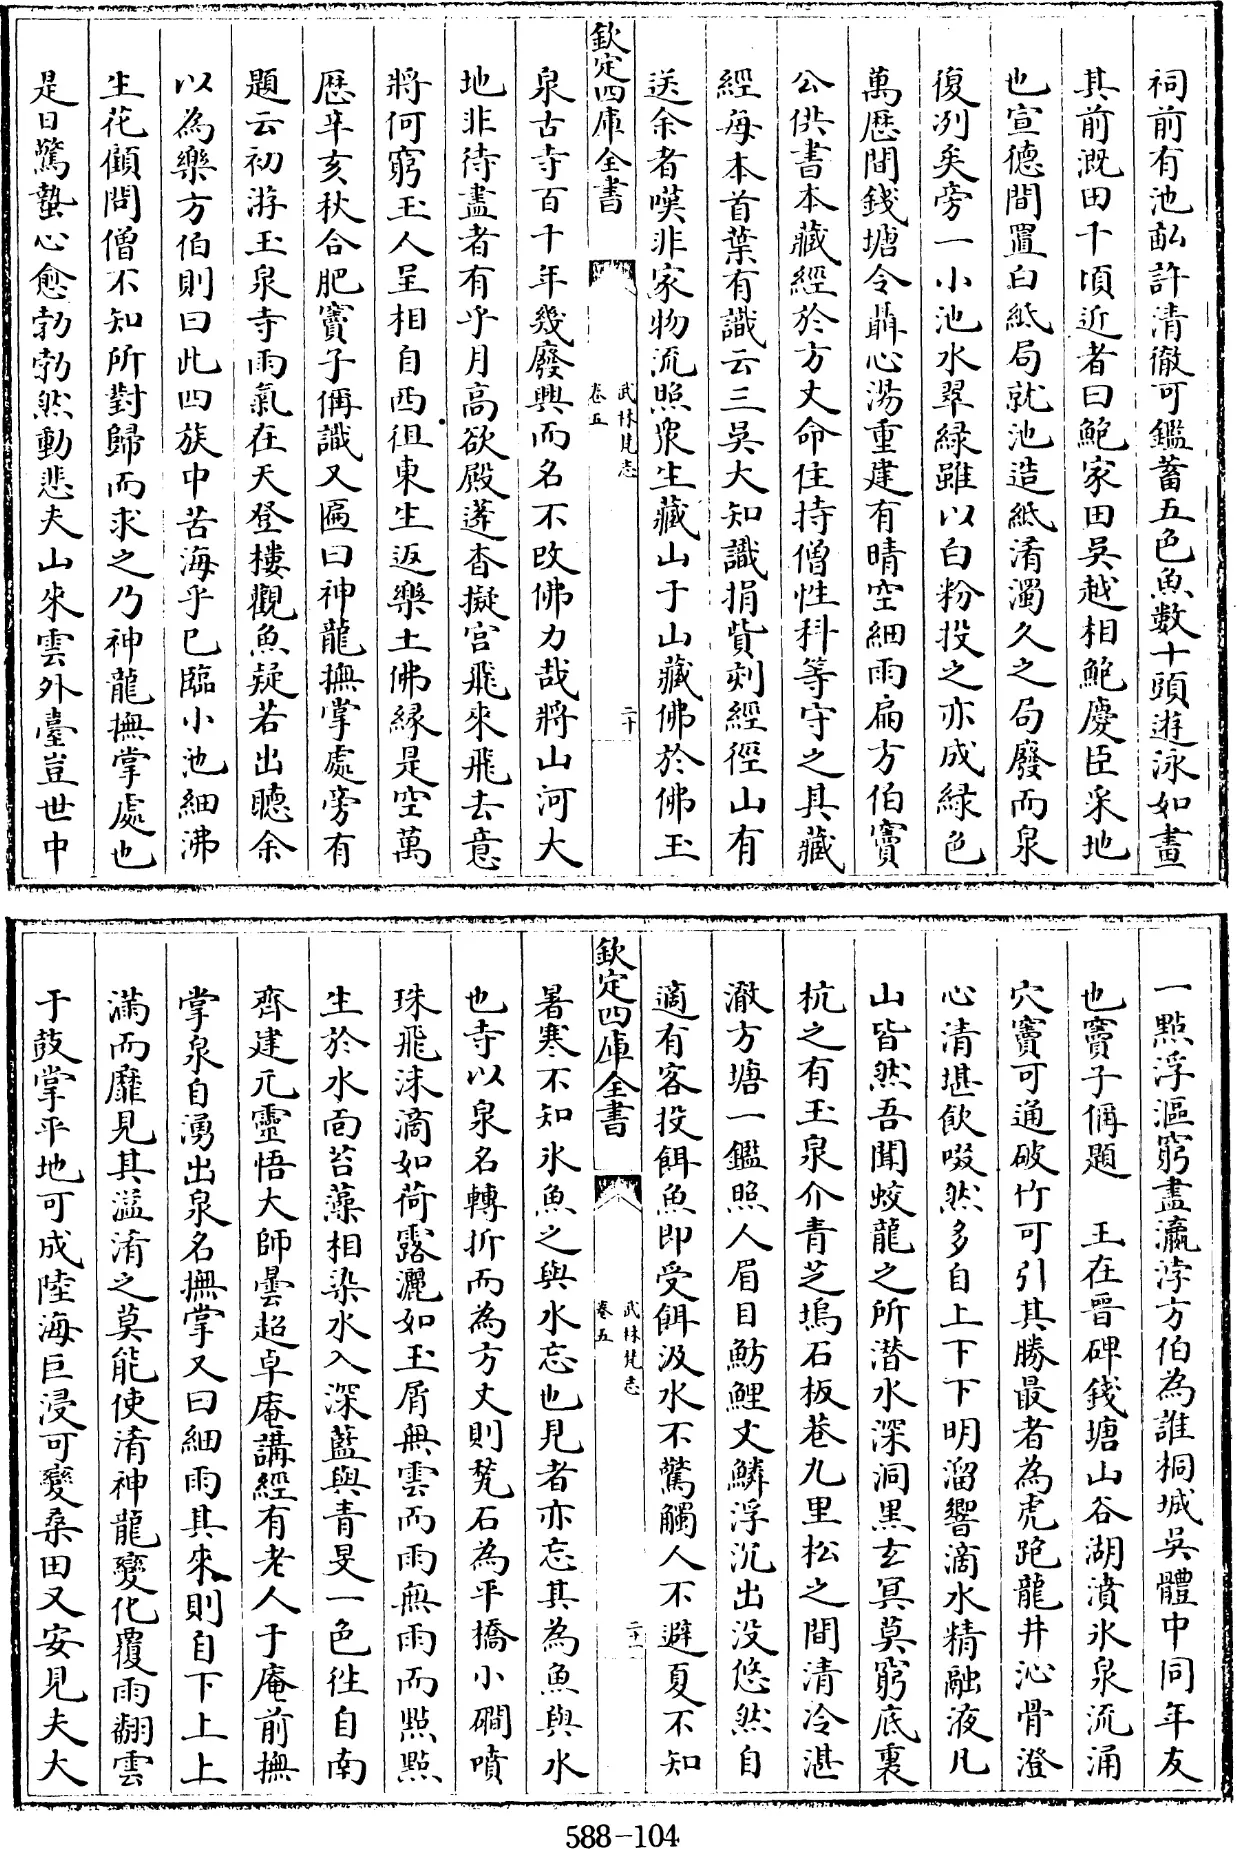 祠前有池畝許清徹可鑑蓄五色魚數十頭遊泳如畫
其前溉田千頃近者曰鮑家田吳越相鮑慶臣采地
也宣德間置白紙局就池造紙淆濁久之局廢而泉
復冽矣旁一小池水翠緑雖以白粉投之亦成緑色
萬厯間錢塘令聶心湯重建有晴空細雨扁方伯竇
公供書本藏經於方丈命住持僧性科等守之具藏
經每本首葉有識云三吳大知識捐貲刻經徑山有
送余者嘆非家物流照衆生藏山于山藏佛於佛玉
欽定四庫全書
武林梵志
卷五
二十
泉古寺百十年幾廢興而名不改佛力哉將山河大
地非待盡者有乎月高欲殿遴杳擬宫飛來飛去意
將何窮玉人呈相自西徂東生返樂土佛縁是空萬
厯辛亥秋合肥竇子偁識又匾曰神龍撫掌處旁有
題云初游玉泉寺雨氣在天登樓觀魚疑若出聴余
以為樂方伯則曰此四族中苦海乎已臨小池細沸
生花傾問僧不知所對歸而求之乃神龍撫掌處也
是日驚蟄心愈勃勃然動悲夫山來雲外臺豈世中
一點浮漚窮盡瀛渟方伯為誰桐城吳體中同年友
也竇子偁題　王在晉碑錢塘山谷湖濆氷泉流涌
穴竇可通破竹可引其勝最者為虎跑龍井沁骨澄
心清堪飲啜然多自上下下明溜響滴水精融液凡
山皆然吾聞蛟龍之所潜水深洞黒玄冥莫窮底裏
杭之有玉泉介青芝塢石板巷九里松之間清冷湛
澈方塘一鑑照人眉目魴鯉丈鱗浮沉出没悠然自
適有客投餌魚即受餌汲水不驚觸人不避夏不知
欽定四庫全書
武林梵志
卷五
二十一
暑寒不知氷魚之與水忘也見者亦忘其為魚與水
也寺以泉名轉折而為方丈則甃石為平橋小磵噴
珠飛沫滴如荷露灑如玉屑無雲而雨無雨而點點
生於水面苔藻相染水入深藍與青旻一色徃自南
齊建元靈悟大師曇超卓庵講經有老人于庵前撫
掌泉自湧出泉名撫掌又曰細雨其來則自下上上
滿而靡見其溢淆之莫能使淆神龍變化覆雨翻雲
于鼓掌平地可成陸海巨浸可變桑田又安見夫大
588-104